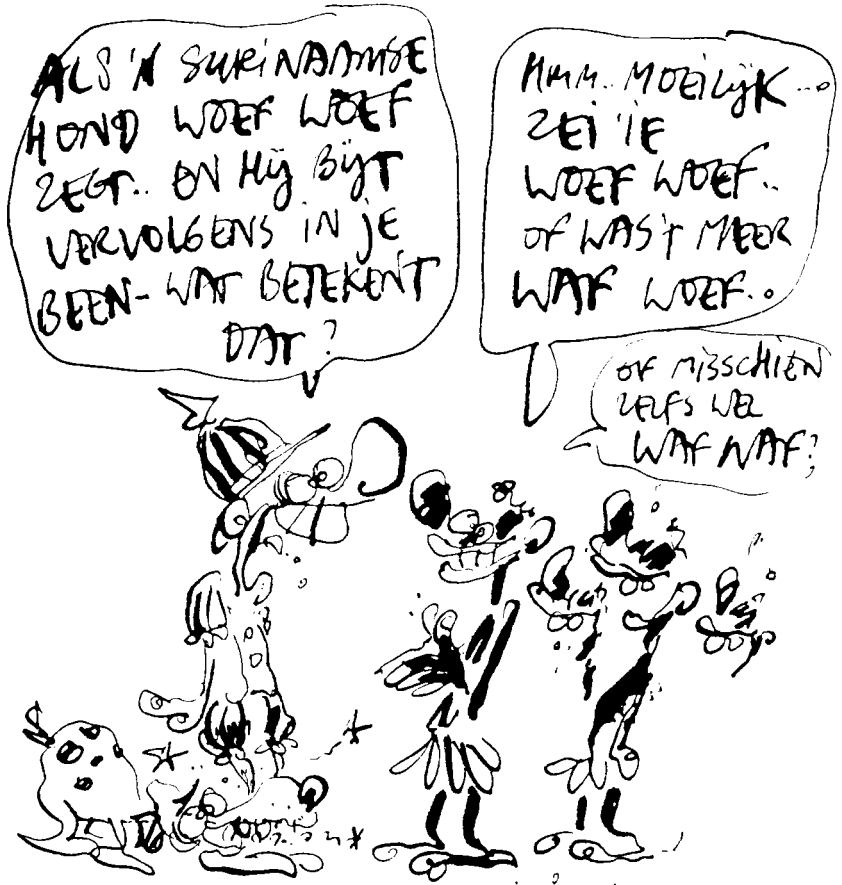 ALS 'N SURINAAMSE
HOND WOEF WOEF
ZEGT.. EN HIJ BIJT
VERVOLGENS IN JE
BEEN- WAT BETEKENT
DAT?
HMM.. MOEILIJK...
ZEI 'IE
WOEF WOEF..
OF WAS 'T MEER
WAF WOEF..
OF MISSCHIEN
ZELFS WEL
WAF WAF?